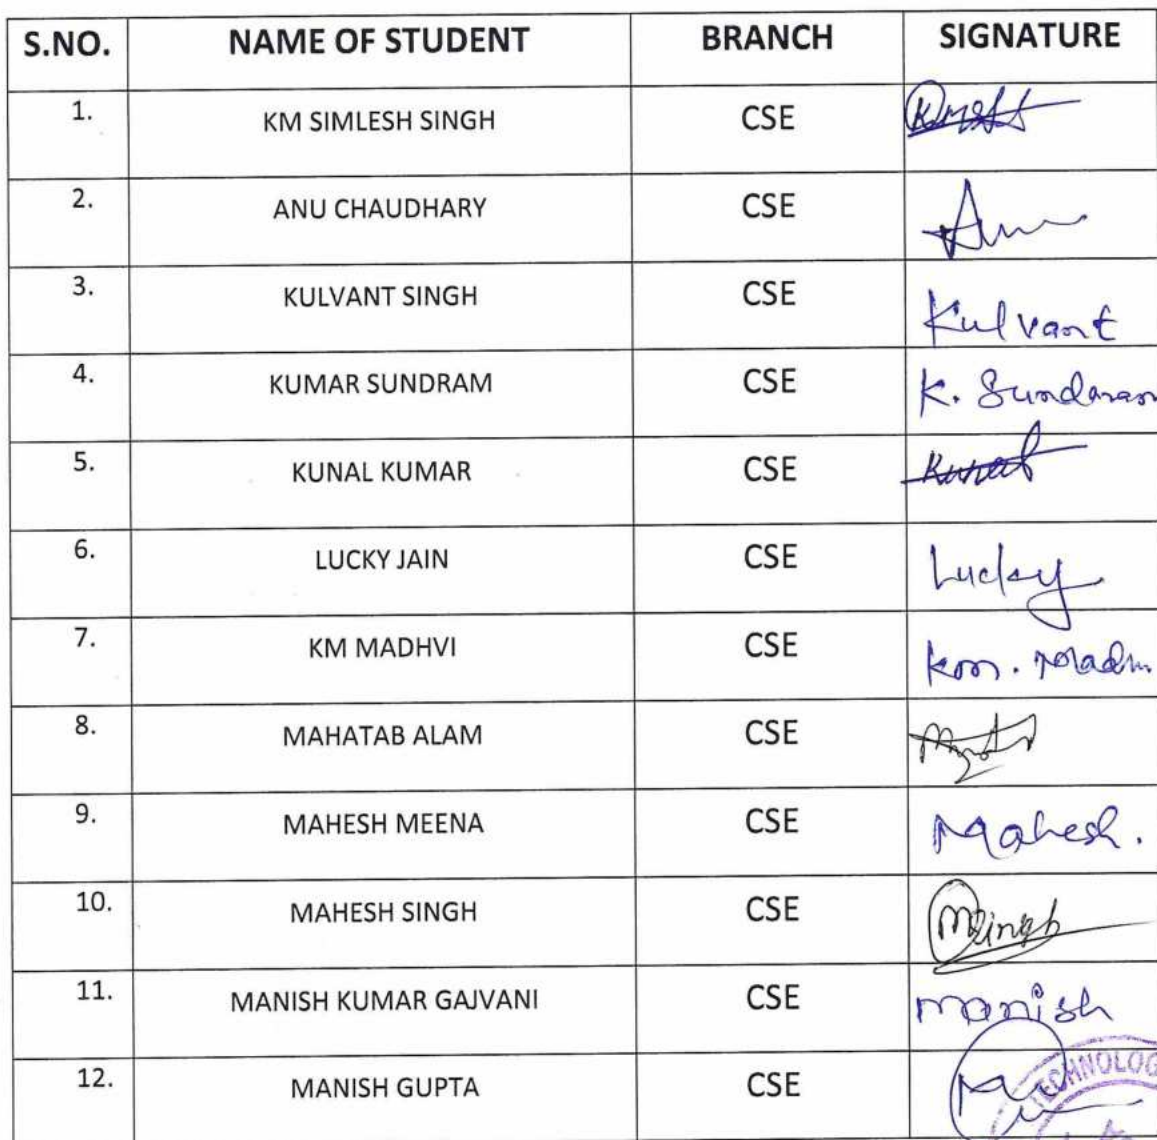 S.NO. NAME OF STUDENT BRANCH SIGNATURE
1. KM SIMLESH SINGH CSE
2. ANU CHAUDHARY CSE Anu
3. KULVANT SINGH CSE Kulvant
4. KUMAR SUNDRAM CSE K. Sundaram
5. KUNAL KUMAR CSE Kunal
6. LUCKY JAIN CSE Lucky
7. KM MADHVI CSE Km.
8. MAHATAB ALAM CSE
9. MAHESH MEENA CSE Mahesh.
10. MAHESH SINGH CSE MSingh
11. MANISH KUMAR GAJVANI CSE Manish
12. MANISH GUPTA CSE
TECHNOLOG